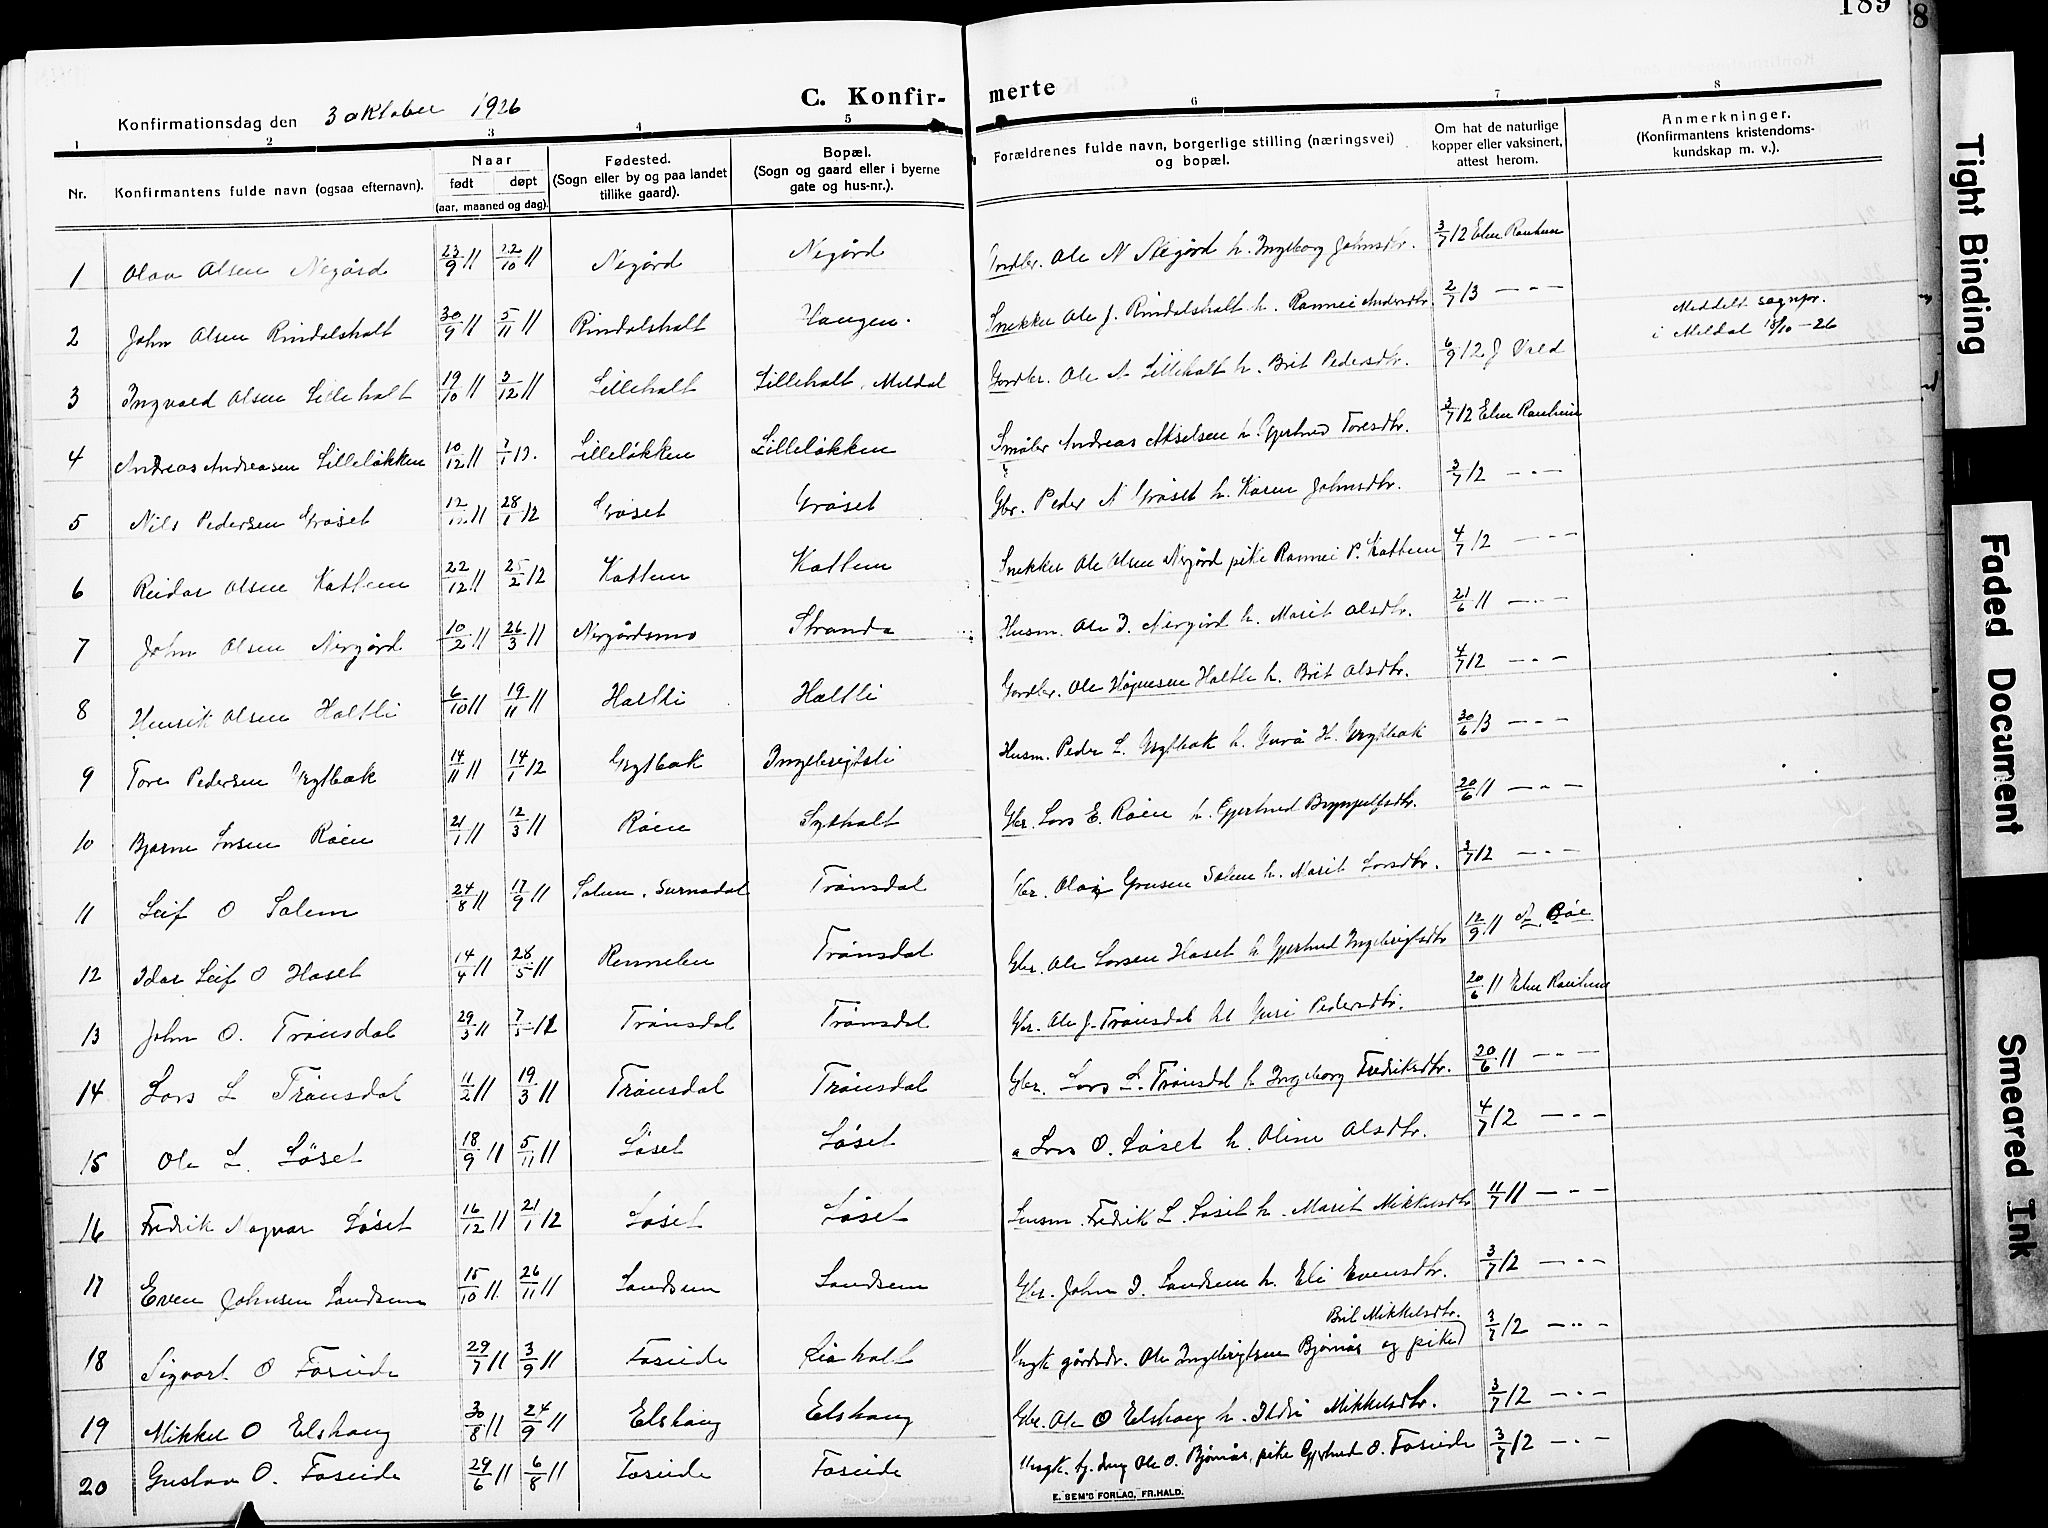 189
8
C. Konfirmerte
Konfirmationsdag den 3 oktober 1926
1 2 3 4 5 6 7 8
Nr. Konfirmantens fulde navn (ogsaa efternavn). Naar født døpt (aar, maaned og dag). Fødested. (Sogn eller by og paa landet tillike gaard). Bopæl. (Sogn og gaard eller i byerne gate og hus-nr.). Forældrenes fulde navn, borgerlige stilling (næringsvei) og bopæl. Om hat de naturlige kopper eller vaksinert, attest herom. Anmerkninger. (Konfirmantens kristendoms-kundskap m. v.).
1 Olav Olsen Negård 23/9 11 22/10 11 Negård Negård Gordbr. Ole N Negård h. Ingeborg Johnsdtr. 3/7 12
2 John Olsen Rindalsholt 30/9 11 5/11 11 Rindalsholt Haugen. Snekker Ole J. Rindalsholt h. Rannei Andersdtr. 2/7 13 — " — Meddelt sognpr. i Meldal 18/10 - 26
3 Ingvald Olsen Lilleholt 19/10 11 3/12 11 Lilleholt Lilleholt, Meldal Gordbr. Ole A Lilleholt h. Brit Pedersdtr. 6/9 12 J Vald
4 Andreas Andreasen Lilleløkken 10/12 11 7/1 12. Lilleløkken Lilleløkken Småbr Andreas Akselsen h. Gjertrud Toresdtr. 3/7 12
5 Nils Pedersen Grøset 12/11 28/1 12 Grøset Grøset Gbr. Peder N Grøset h. Karen Johnsdtr. 3/7 12 — " —
6 Reidar Olsen Kattem 22/12 11 25/2 12 Kattem Kattem Snekker Ole Olsen Nergård pike Rannei P. Kattem 4/7 12 — " —
7 John Olsen Nergård 10/2 11 26/3 11 Nergårdsmo Stranda Husm. Ole I. Nergård h. Marit Olsdtr. 21/6 11 — " —
8 Henrik Olsen Holtli 6/10 11 19/11 11 Holtli Holtli Gordbr. Ole Hågensen Holtli h. Brit Olsdtr. 4/7 12 — " —
9 Tore Pedersen Grytbak 14/11 11 14/1 12 Grytbak Ingebrigtsli Husm. Peder L. Grytbak h. Gurå H. Grytbak 30/6 13 — " —
10 Bjarne Larsen Røen 21/1 11 12/3 11 Røen Sytholt Gbr. Lars E. Røen h. Gjertrud Brynjulfsdtr. 20/6 11 — " —
11 Leif O Solem 24/8 11 17/9 11 Solem, Surnadal Trønsdal Gbr. Olai Grusen Solem h. Marit Larsdtr. 3/7 12 — " —
12 Idar Leif O Haset 14/4 11 28/5 11 Rennelen Trønsdal Gbr. Ole Larsen Haset h. Gjertrud Ingebrigtsdtr 12/9 11 A. Bøe
13 John O. Trønsdal 29/3 11 7/5 12 Trønsdal Trønsdal Gbr. Ole J. Trønsdal h Guri Pedersdtr. 20/6 11
14 Lars L Trønsdal 11/2 11 19/3 11 Trønsdal Trønsdal Gbr. Lars L. Trønsdal h Ingeborg Fredriksdtr. 20/6 11 — " —
15 Ole L. Løset 18/9 11 5/11 11 Løset Løset " Lars O. Løset h. Oline Olsdtr. 4/7 12 — " —
16 Fredrik Magnar Løset 16/12 11 21/1 12 Løset Løset Lensm. Fredrik L. Løset h. Marit Mikkelsdtr 11/7 11 — " —
17 Even Johnsen Landsem 15/10 11. 26/11 11 Landsem Landsem Gbr. John I. Landsem h. Eli Evensdtr. 3/7 12 — " —
18 Sigvart O Foseide 29/7 11 3/9 11 Foseide Liaholt Ungk gårdsdr. Ole Ingebrigtsen Bjørnås og pike Brit Mikkelsdtr. 3/7 12 — " —
19 Mikkel O Elshaug 30/8 11 24/9 11 Elshaug Elshaug Gbr. Ole O Elshaug h. Ildri Mikkelsdtr. 3/7 12 — " —
20 Gustav O. Foseide 29/6 11 6/8 11 Foseide Foseide Ungk. Ole O. Bjørnås, pike Gjertrud O. Foseide 3/7 12 — " —
E. SEM'S FORLAG, FR.HALD.
Tight Binding
Faded Document
Smeared Ink